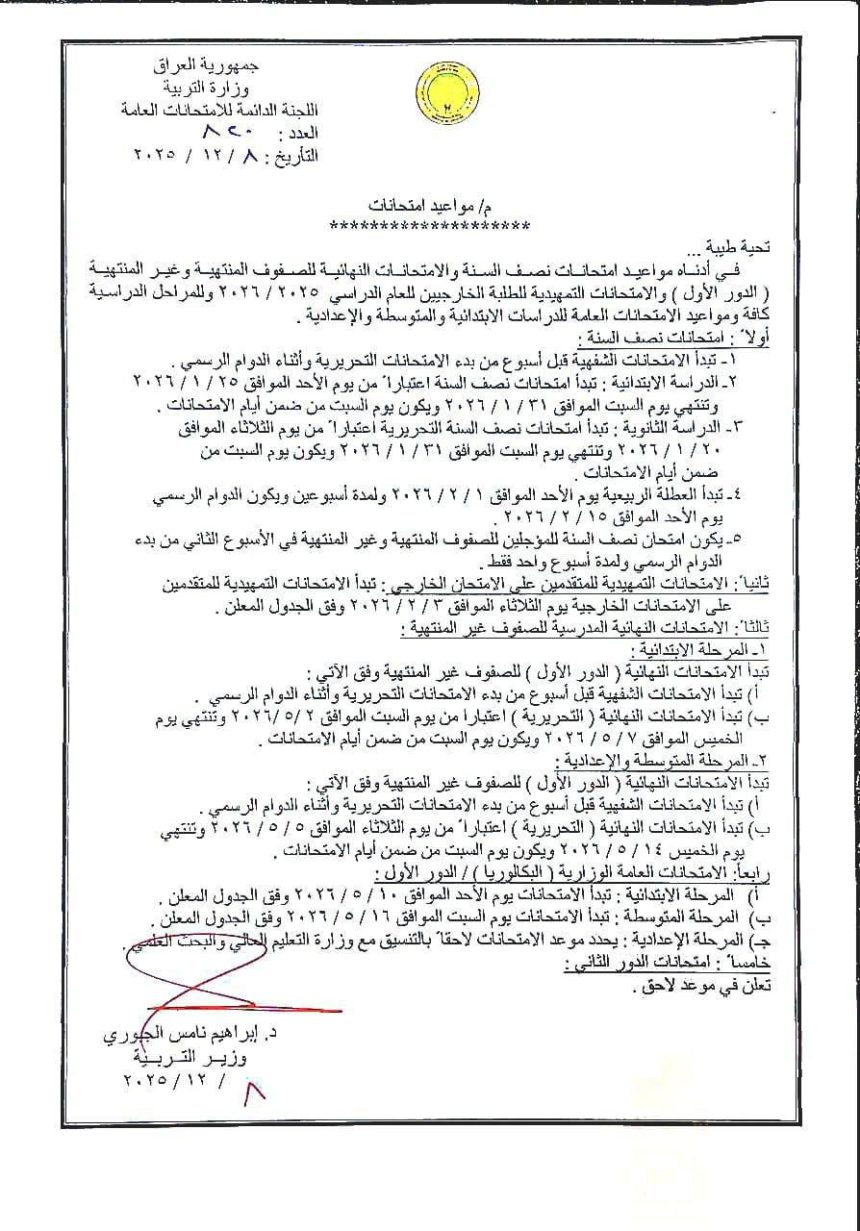 جمهورية العراق
وزارة التربية
اللجنة الدائمة للامتحانات العامة
العدد : ٨٢٠
التأريخ : ٨ / ١٢ / ٢٠٢٥
م/ مواعيد امتحانات
********************
تحية طيبة ...
فـي أدنـاه مواعيـد امتحانـات نصـف السـنة والامتحانـات النهائيـة للصـفوف المنتهيـة وغيـر المنتهيـة
( الدور الأول ) والامتحانات التمهيدية للطلبة الخارجيين للعام الدراسي ٢٠٢٥ / ٢٠٢٦ وللمراحل الدراسية
كافة ومواعيد الامتحانات العامة للدراسات الابتدائية والمتوسطة والإعدادية .
أولاً : امتحانات نصف السنة :
١- تبدأ الامتحانات الشفهية قبل أسبوع من بدء الامتحانات التحريرية وأثناء الدوام الرسمي .
٢- الدراسة الابتدائية : تبدأ امتحانات نصف السنة اعتباراً من يوم الأحد الموافق ٢٥ / ١ / ٢٠٢٦
وتنتهي يوم السبت الموافق ٣١ / ١ / ٢٠٢٦ ويكون يوم السبت من ضمن أيام الامتحانات .
٣- الدراسة الثانوية : تبدأ امتحانات نصف السنة التحريرية اعتباراً من يوم الثلاثاء الموافق
٢٠ / ١ / ٢٠٢٦ وتنتهي يوم السبت الموافق ٣١ / ١ / ٢٠٢٦ ويكون يوم السبت من
ضمن أيام الامتحانات .
٤- تبدأ العطلة الربيعية يوم الأحد الموافق ١ / ٢ / ٢٠٢٦ ولمدة أسبوعين ويكون الدوام الرسمي
يوم الأحد الموافق ١٥ / ٢ / ٢٠٢٦ .
٥- يكون امتحان نصف السنة للمؤجلين للصفوف المنتهية وغير المنتهية في الأسبوع الثاني من بدء
الدوام الرسمي ولمدة أسبوع واحد فقط .
ثانياً: الامتحانات التمهيدية للمتقدمين على الامتحان الخارجي : تبدأ الامتحانات التمهيدية للمتقدمين
على الامتحانات الخارجية يوم الثلاثاء الموافق ٣ / ٢ / ٢٠٢٦ وفق الجدول المعلن .
ثالثاً: الامتحانات النهائية المدرسية للصفوف غير المنتهية :
١- المرحلة الابتدائية :
تبدأ الامتحانات النهائية ( الدور الأول ) للصفوف غير المنتهية وفق الآتي :
أ) تبدأ الامتحانات الشفهية قبل أسبوع من بدء الامتحانات التحريرية وأثناء الدوام الرسمي .
ب) تبدأ الامتحانات النهائية ( التحريرية ) اعتبارا من يوم السبت الموافق ٢ /٥ /٢٠٢٦ وتنتهي يوم
الخميس الموافق ٧ / ٥ / ٢٠٢٦ ويكون يوم السبت من ضمن أيام الامتحانات .
٢- المرحلة المتوسطة والإعدادية :
تبدأ الامتحانات النهائية ( الدور الأول ) للصفوف غير المنتهية وفق الآتي :
أ) تبدأ الامتحانات الشفهية قبل أسبوع من بدء الامتحانات التحريرية وأثناء الدوام الرسمي .
ب) تبدأ الامتحانات النهائية ( التحريرية ) اعتباراً من يوم الثلاثاء الموافق ٥ / ٥ / ٢٠٢٦ وتنتهي
يوم الخميس ١٤ / ٥ / ٢٠٢٦ ويكون يوم السبت من ضمن أيام الامتحانات .
رابعاً: الامتحانات العامة الوزارية ( البكالوريا ) / الدور الأول :
أ) المرحلة الابتدائية : تبدأ الامتحانات يوم الأحد الموافق ١٠ / ٥ / ٢٠٢٦ وفق الجدول المعلن .
ب) المرحلة المتوسطة : تبدأ الامتحانات يوم السبت الموافق ١٦ / ٥ / ٢٠٢٦ وفق الجدول المعلن .
جـ) المرحلة الإعدادية : يحدد موعد الامتحانات لاحقاً بالتنسيق مع وزارة التعليم العالي والبحث العلمي .
خامساً : امتحانات الدور الثاني :
تعلن في موعد لاحق .
د. إبراهيم نامس الجبوري
وزيـر التـربـيـة
٨ / ١٢ / ٢٠٢٥